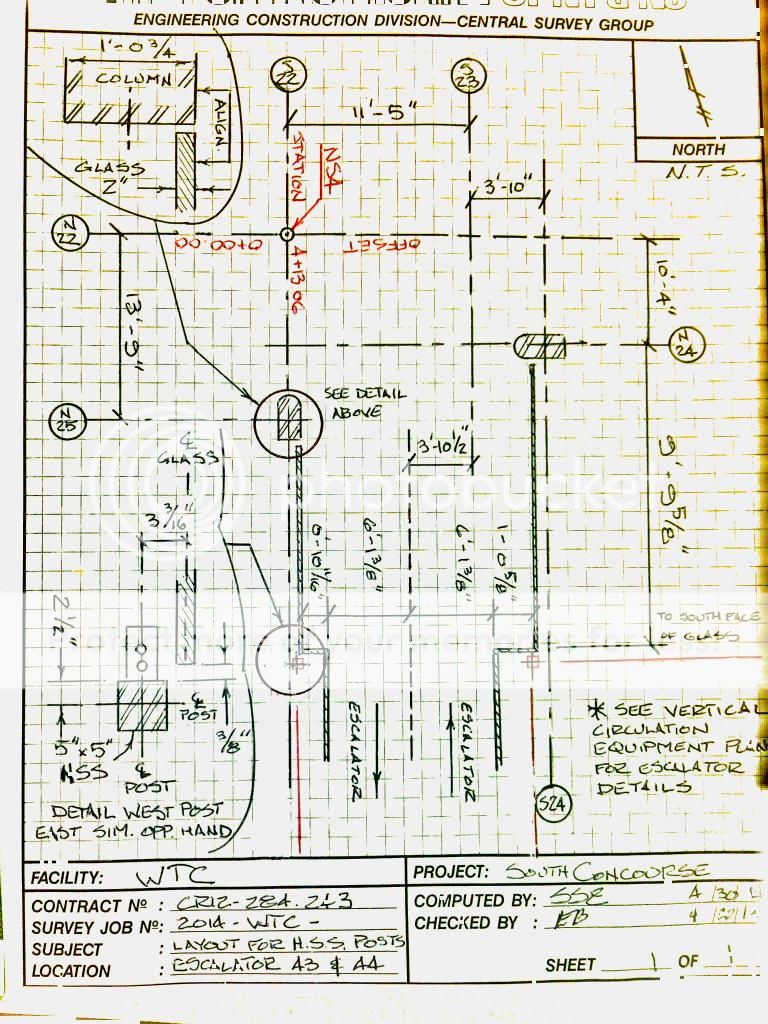 ENGINEERING CONSTRUCTION DIVISION—CENTRAL SURVEY GROUP
1'-0 3/4
COLUMN
ALIGN.
GLASS
2"
S
22
S
23
11'-5"
NORTH
N.T.S.
STATION
NSA
3'-10"
N
22
0+00.00
OFFSET
4+13.06
13'-9"
10'-4"
N
24
N
25
SEE DETAIL
ABOVE
℄
GLASS
3'-10 1/2"
photobucket
3 3/16"
0'-10 11/16"
6'-1 3/8"
6'-1 3/8"
1'-0 5/8"
9'-9 5/8"
TO SOUTH FACE
OF GLASS
2 1/2"
℄
POST
3/8"
5"x5"
HSS
℄
POST
ESCALATOR
ESCALATOR
* SEE VERTICAL
CIRCULATION
EQUIPMENT PLAN
FOR ESCALATOR
DETAILS
S24
DETAIL WEST POST
EAST SIM. OPP. HAND
FACILITY: WTC
PROJECT: SOUTH CONCOURSE
CONTRACT Nº : CR12-284.213
COMPUTED BY: SSE 4/30/1
SURVEY JOB Nº: 2014-WTC-
CHECKED BY : EB
SUBJECT : LAYOUT FOR H.S.S. POSTS
LOCATION : ESCALATOR 43 & 44
SHEET 1 OF 1